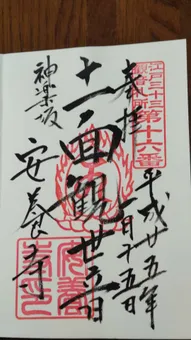 江戸三十三
観音札所
第十六番
奉拝
平成廿五年
一月十五日
十一面観世音
神楽坂
安養寺